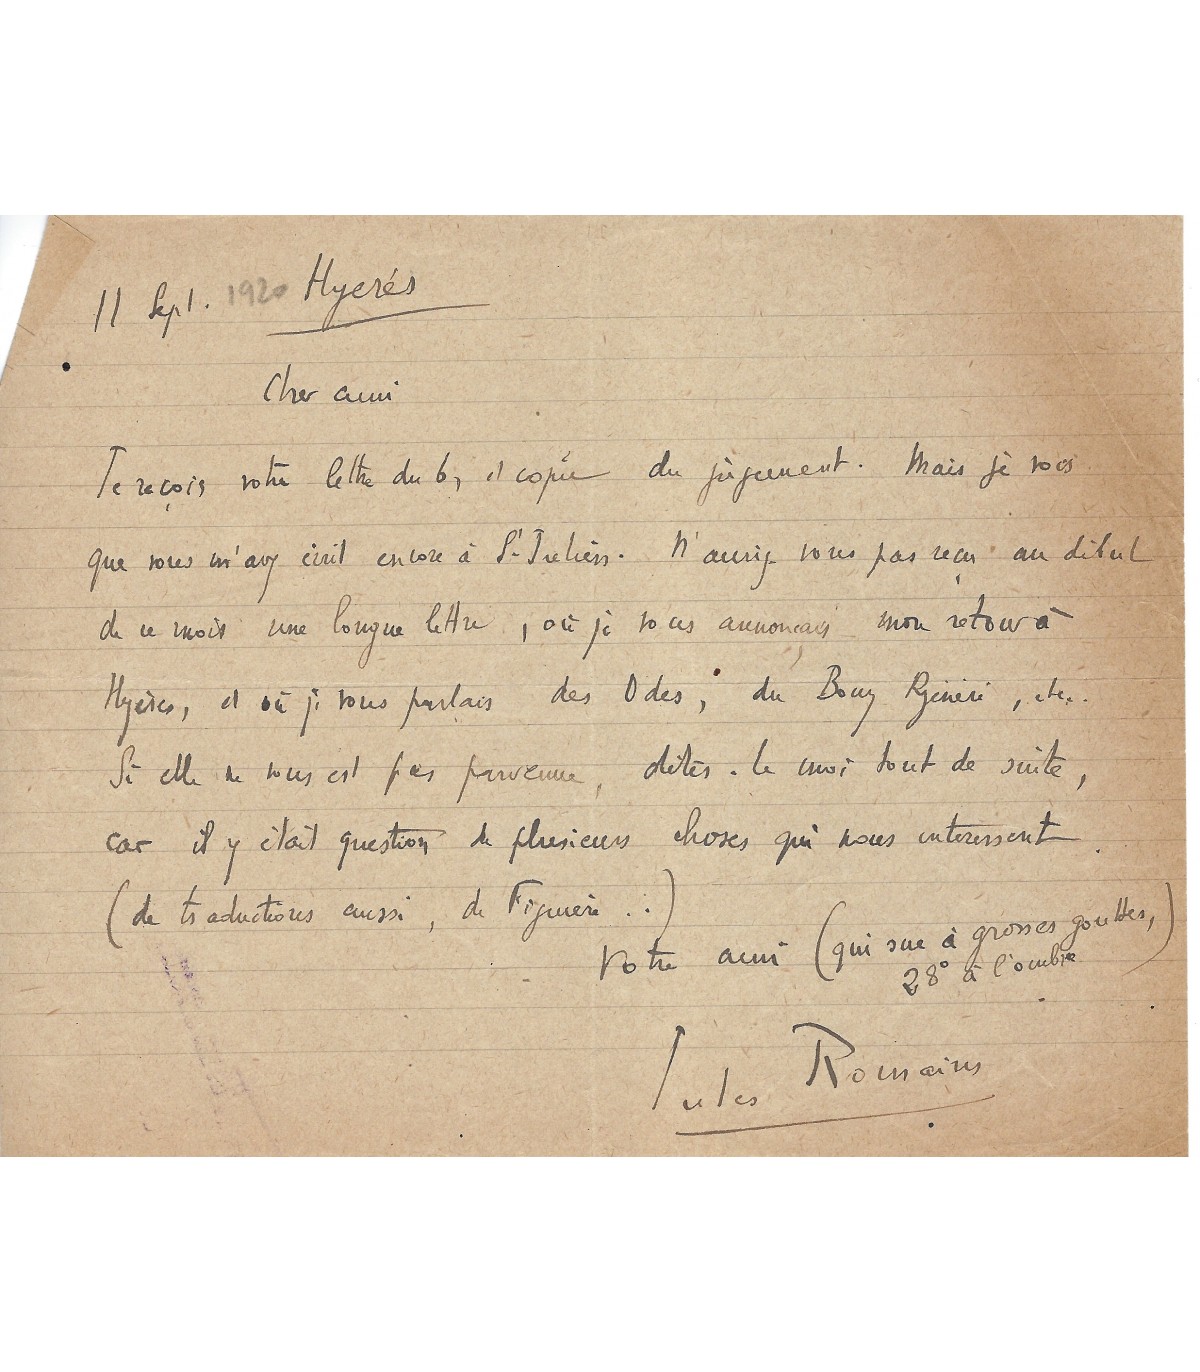 11 Sept. 1920 Hyerés
Cher ami
Je reçois votre lettre du 6, et copie du jugement. Mais je vois
que vous m'avez écrit encore à St-Julien. N'auriez vous pas reçu au début
de ce mois une longue lettre, où je vous annonçais mon retour à
Hyères, et où je vous parlais des Odes, du Bourg Régénéré, etc..
Si elle ne vous est pas parvenue, dites-le moi tout de suite,
car il y était question de plusieurs choses qui nous intéressent
(de traductions aussi, de Figuière..)
Votre ami (qui sue à grosses gouttes,
28° à l'ombre)
Jules Romains